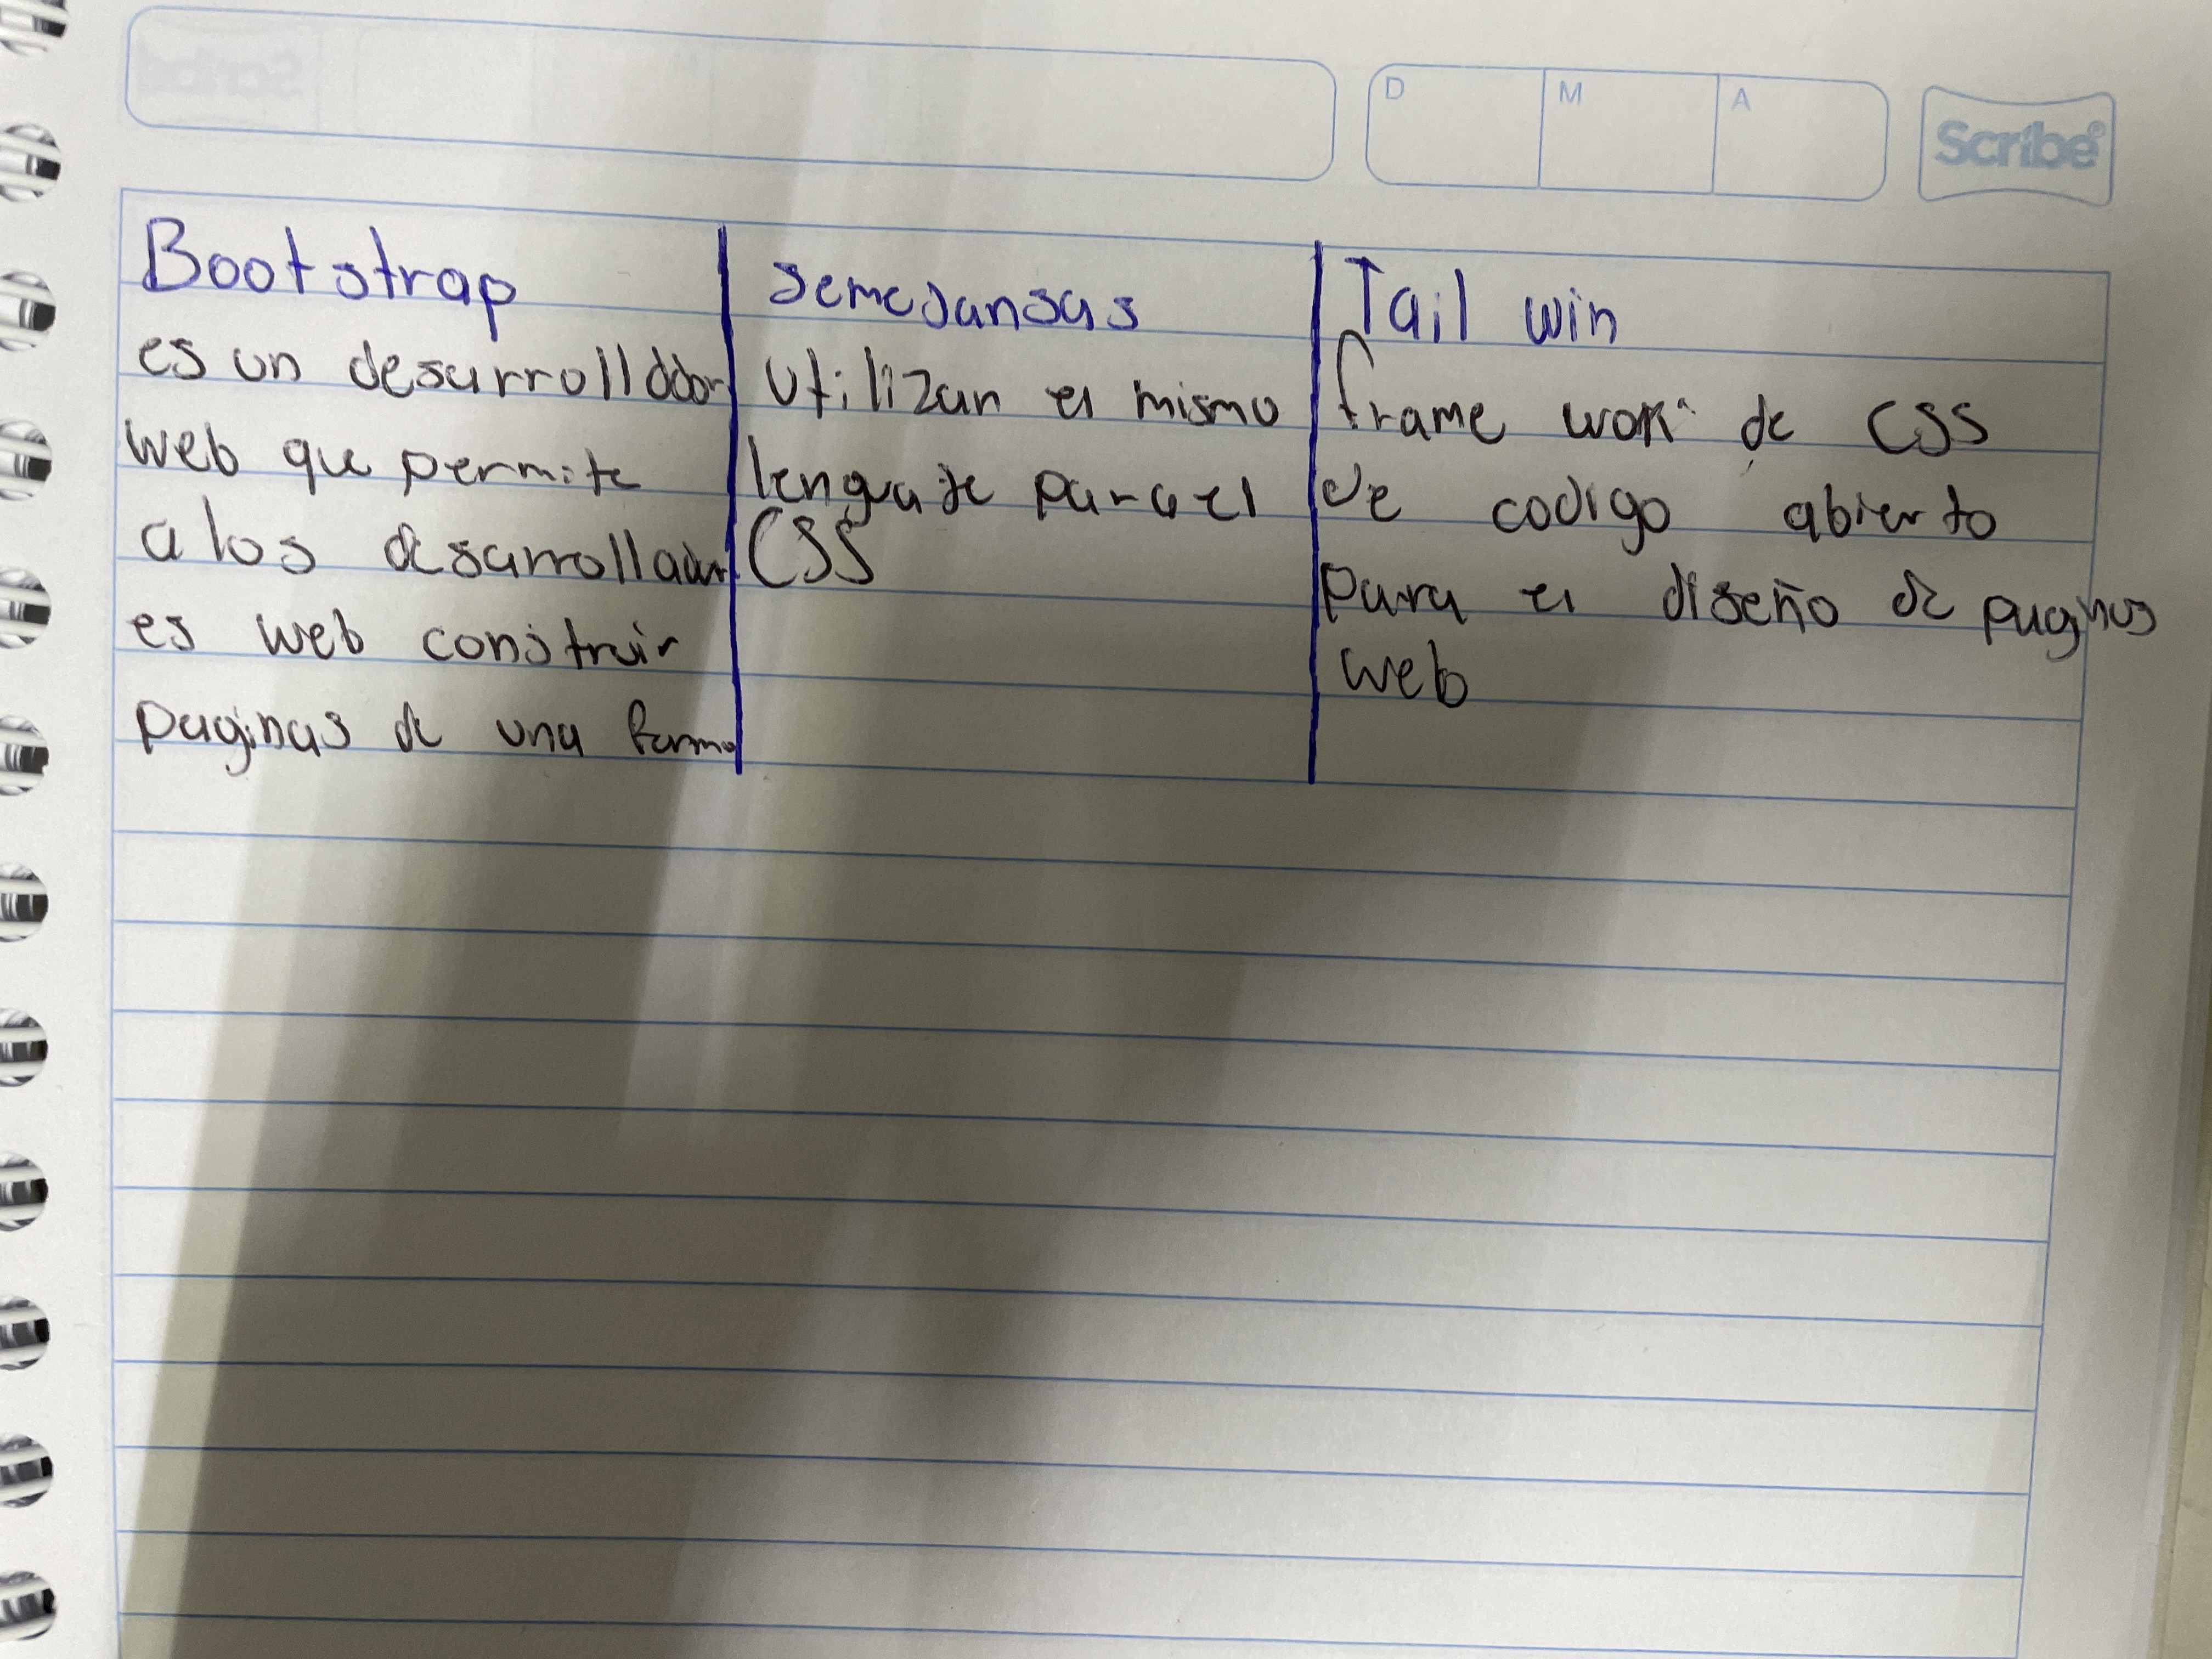 D M A
Scribe
Bootstrap
es un desarrollddor
web que permite
a los desarrollador
es web construir
paginas de una forma
semejansas
utilizan el mismo
lenguaje para el
CSS
Tail win
frame work de CSS
de codigo abierto
para el diseño de paginas
web